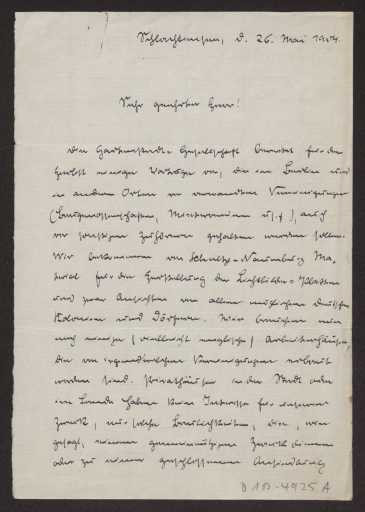 Schlachtensee, d. 26. Mai 1904.
Sehr geehrter Herr!
Die Gartenstadt-Gesellschaft bereitet für den
Herbst einige Vorträge vor, die in Berlin und
in andern Orten in verwandten Vereinigungen
(Baugenossenschaften, Mietervereinen u.s.f.), auch
vor sonstigen Zuhörern gehalten werden sollen.
Wir bekommen von Schultze-Naumburg Ma-
terial für die Herstellung der Lichtbilder-Platten
und zwar Ansichten von alten deutschen
Kolonien und Dörfern. Wir brauchen nun
noch einige (vielleicht englische) Arbeiterhäuser,
die von irgendwelchen Vereinigungen erbaut
worden sind. Privathäuser in der Stadt oder
im Lande haben kein Interesse für unsern
Zweck, nur solche Baulichkeiten, die, wie
gesagt, einem gemeinnützigen Zweck dienen
oder zu einer geschlossenen Ansiedlung
D 10-4925 A